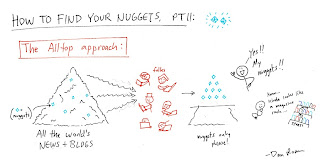 HOW TO FIND YOUR NUGGETS, PT II:
The Alltop approach:
(nuggets)
All the World's
NEWS + BLOGS
folks
nuggets only
please!
Yes!!
My
nuggets!!
looks like
a magazine
rack